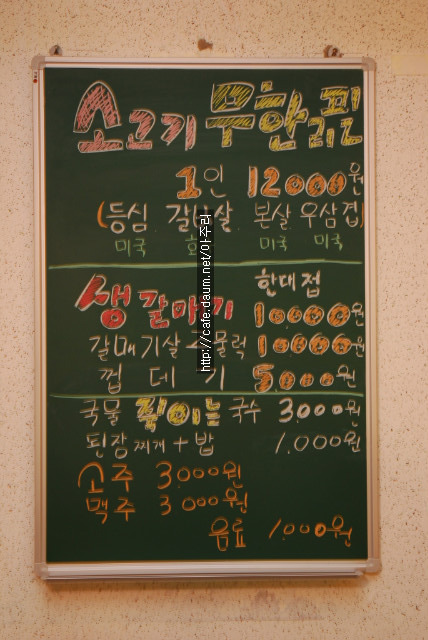 소고기 무한리필
1인 12000원
(등심 갈비살 본살 우삼겹)
미국 미국 미국
한대접
생갈매기 10000원
갈매기살 주물럭 10000원
껍데기 5000원
국물 죽이는 국수 3000원
된장찌개+밥 1,000원
소주 3000원
맥주 3000원
음료 1,000원
http://cafe.daum.net/아주리